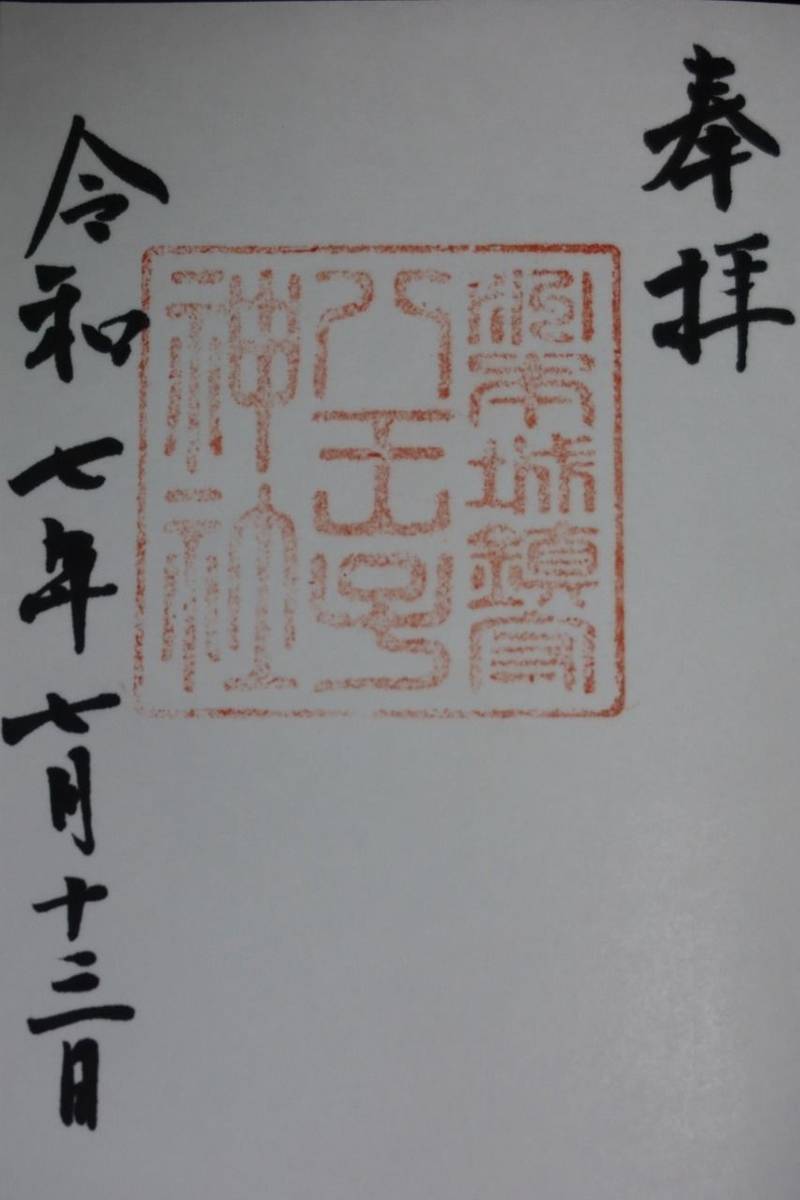 奉拝
本城鎮守
八王子
神社
令和七年七月十三日